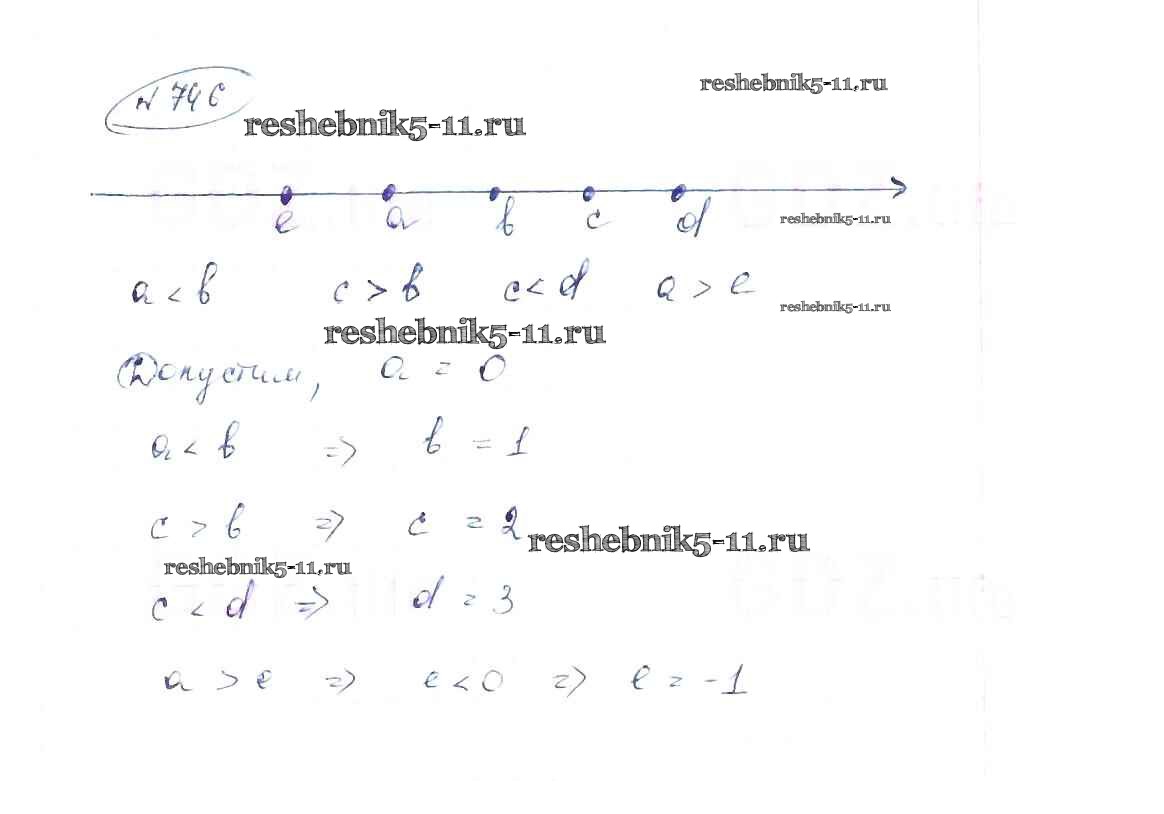 № 746
reshebnik5-11.ru
reshebnik5-11.ru
e a b c d
reshebnik5-11.ru
a < b c > b c < d a > e
reshebnik5-11.ru
reshebnik5-11.ru
Допустим, a = 0
a < b => b = 1
c > b => c = 2
reshebnik5-11.ru
reshebnik5-11.ru
c < d => d = 3
a > e => e < 0 => e = -1